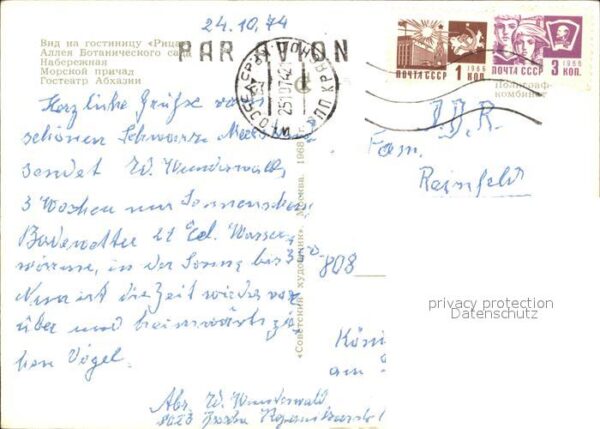 24.10.74
Вид на гостиницу «Рица»
Аллея Ботанического сада
Набережная
Морской причал
Гостеатр Абхазии
PAR AVION
ПОЧТА СССР 1 КОП.
1966
ПОЧТА СССР 3 КОП.
1966
Полиграф-
комбинат
Herzliche Grüße vom
schönen Schwarze Meer
sendet W. Wunderwald
3 Wochen nur Sonnenschein
Badewetter 21 Cel. Wasser
wärme, in der Sonne bis 35
Nun ist die Zeit wieder vor
über und heimwärts zie
hen Vögel.
Abs. W. Wunderwald
«Советский художник». Москва. 1968
D.D.R.
Fam.
Reinfeld
808
privacy protection
Datenschutz
Köni
am